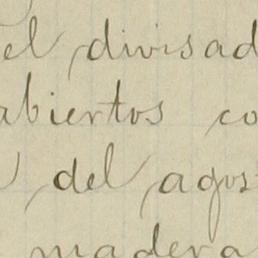 el divisad
abiertos co
del agos
madera